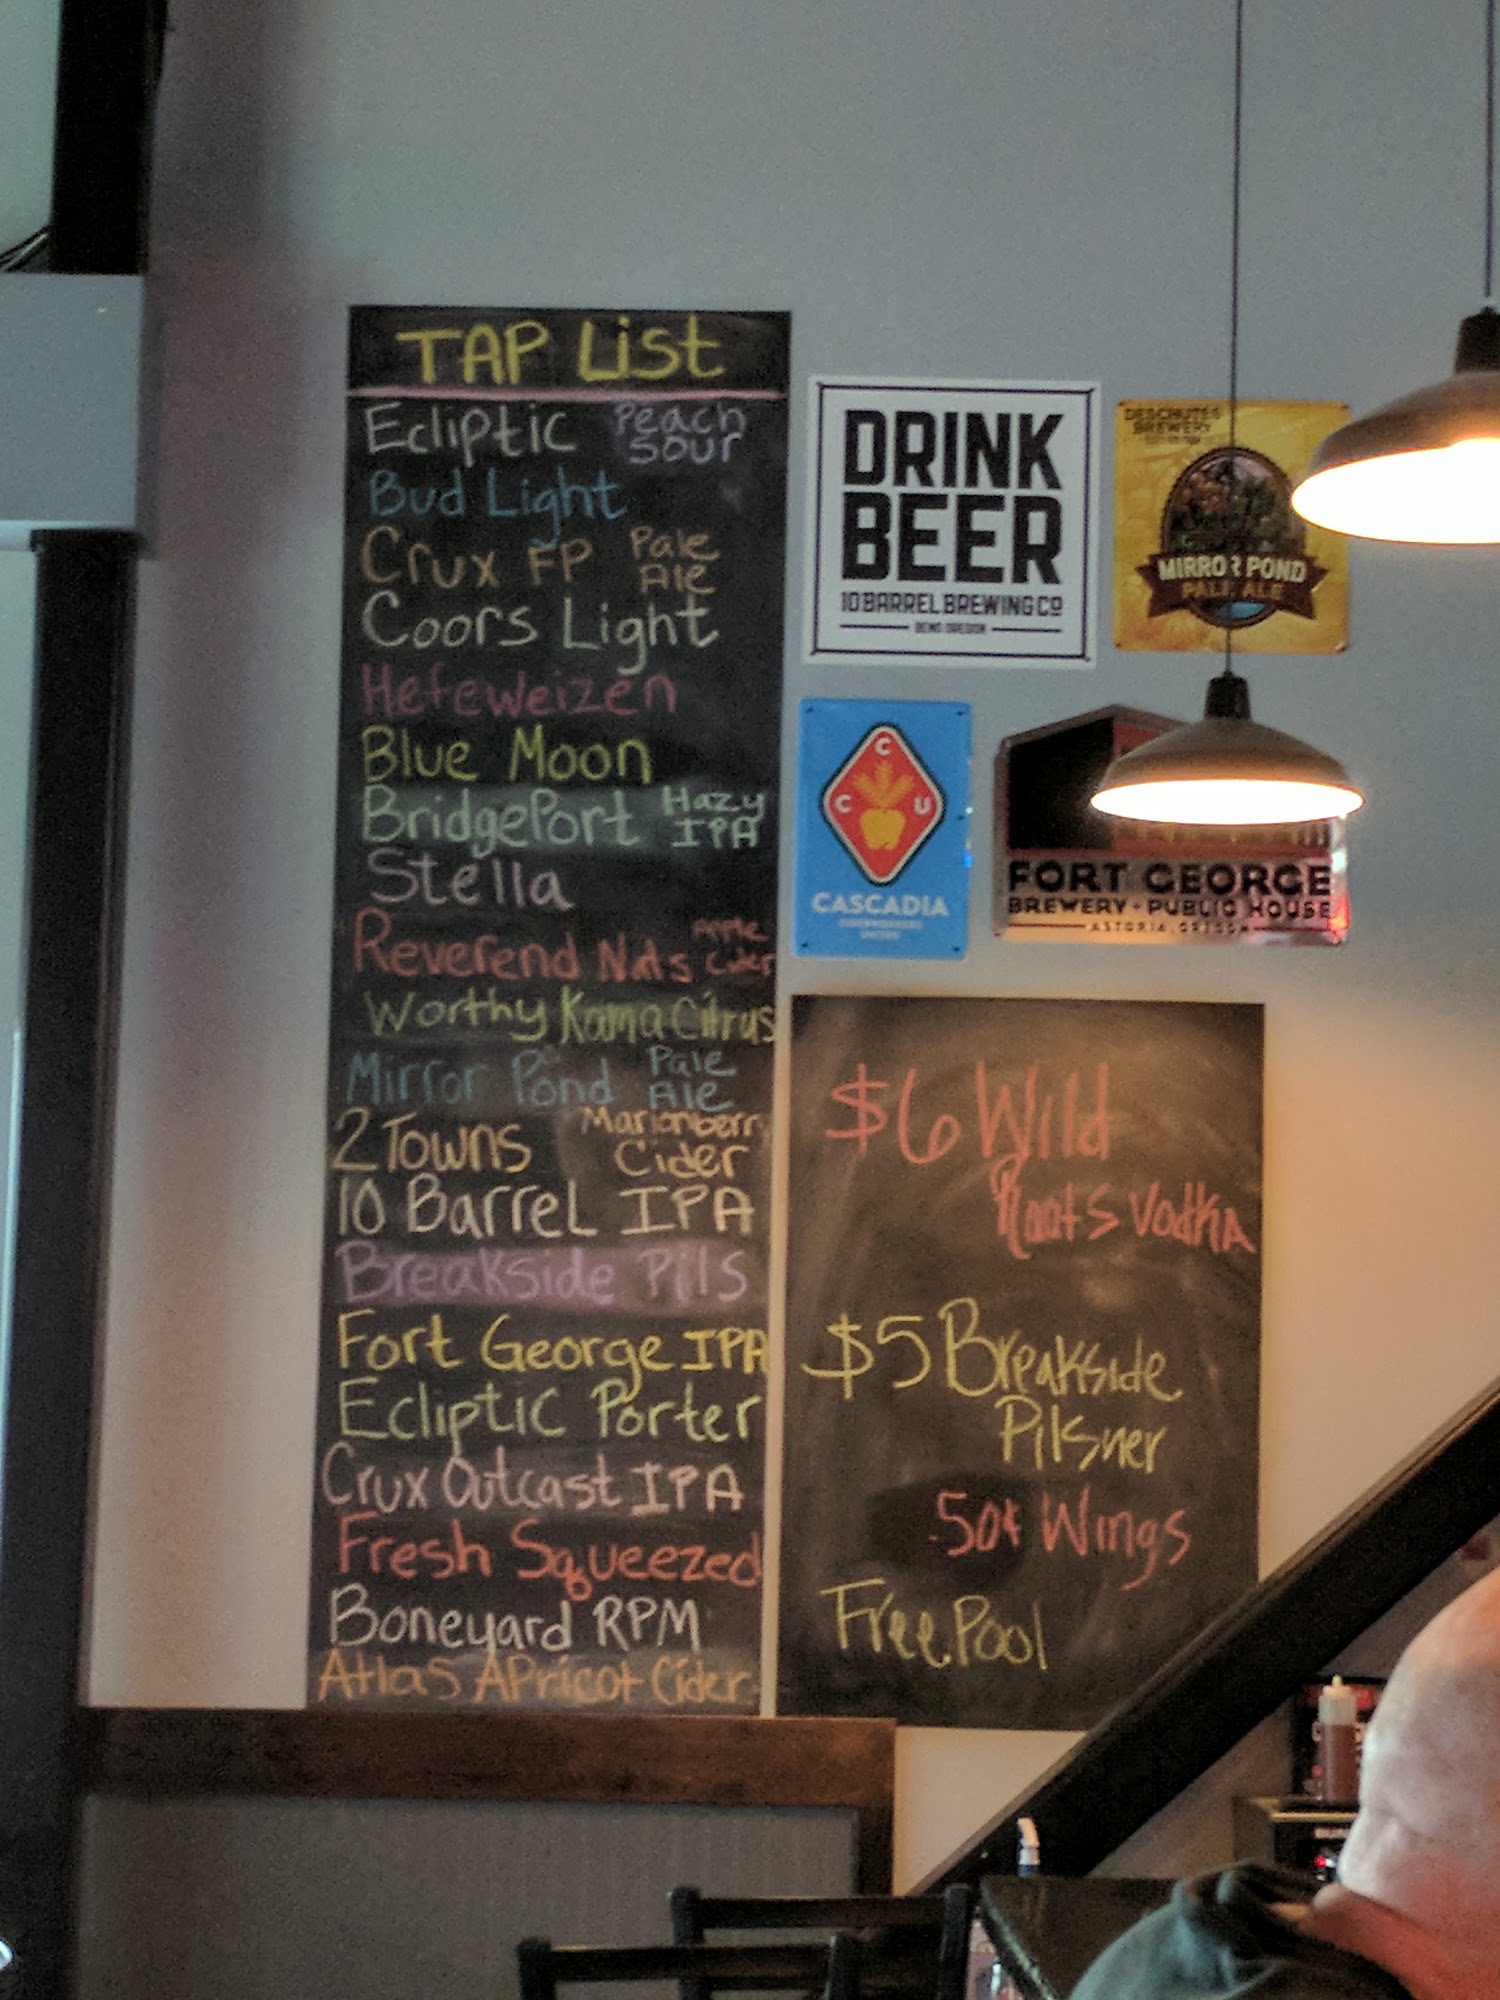 TAP List
Ecliptic Peach Sour
Bud Light
Crux FP Pale Ale
Coors Light
Hefeweizen
Blue Moon
BridgePort Hazy IPA
Stella
Reverend Nats Apple Cider
Worthy Kama Citrus
Mirror Pond Pale Ale
2 Towns Marionberry Cider
10 Barrel IPA
Breakside Pils
Fort George IPA
Ecliptic Porter
Crux Outcast IPA
Fresh Squeezed
Boneyard RPM
Atlas Apricot Cider
DRINK
BEER
10 BARREL BREWING CO
BEND OREGON
DESCHUTES
BREWERY
MIRROR POND
PALE ALE
C
C U
CASCADIA
CIDERWORKERS
UNITED
FORT GEORGE
BREWERY + PUBLIC HOUSE
ASTORIA, OREGON
$6 Wild
Roots Vodka
$5 Breakside
Pilsner
.50¢ Wings
Free Pool